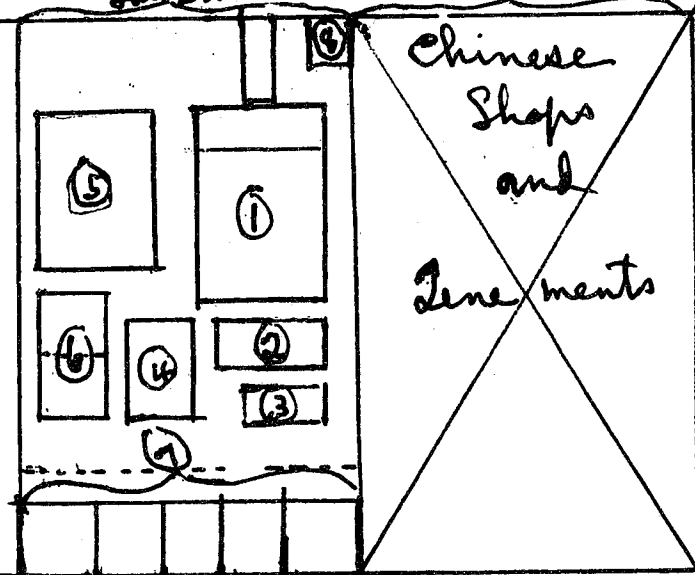 8
Chinese
Shops
and
Tenements
5
1
6
4
2
3
7